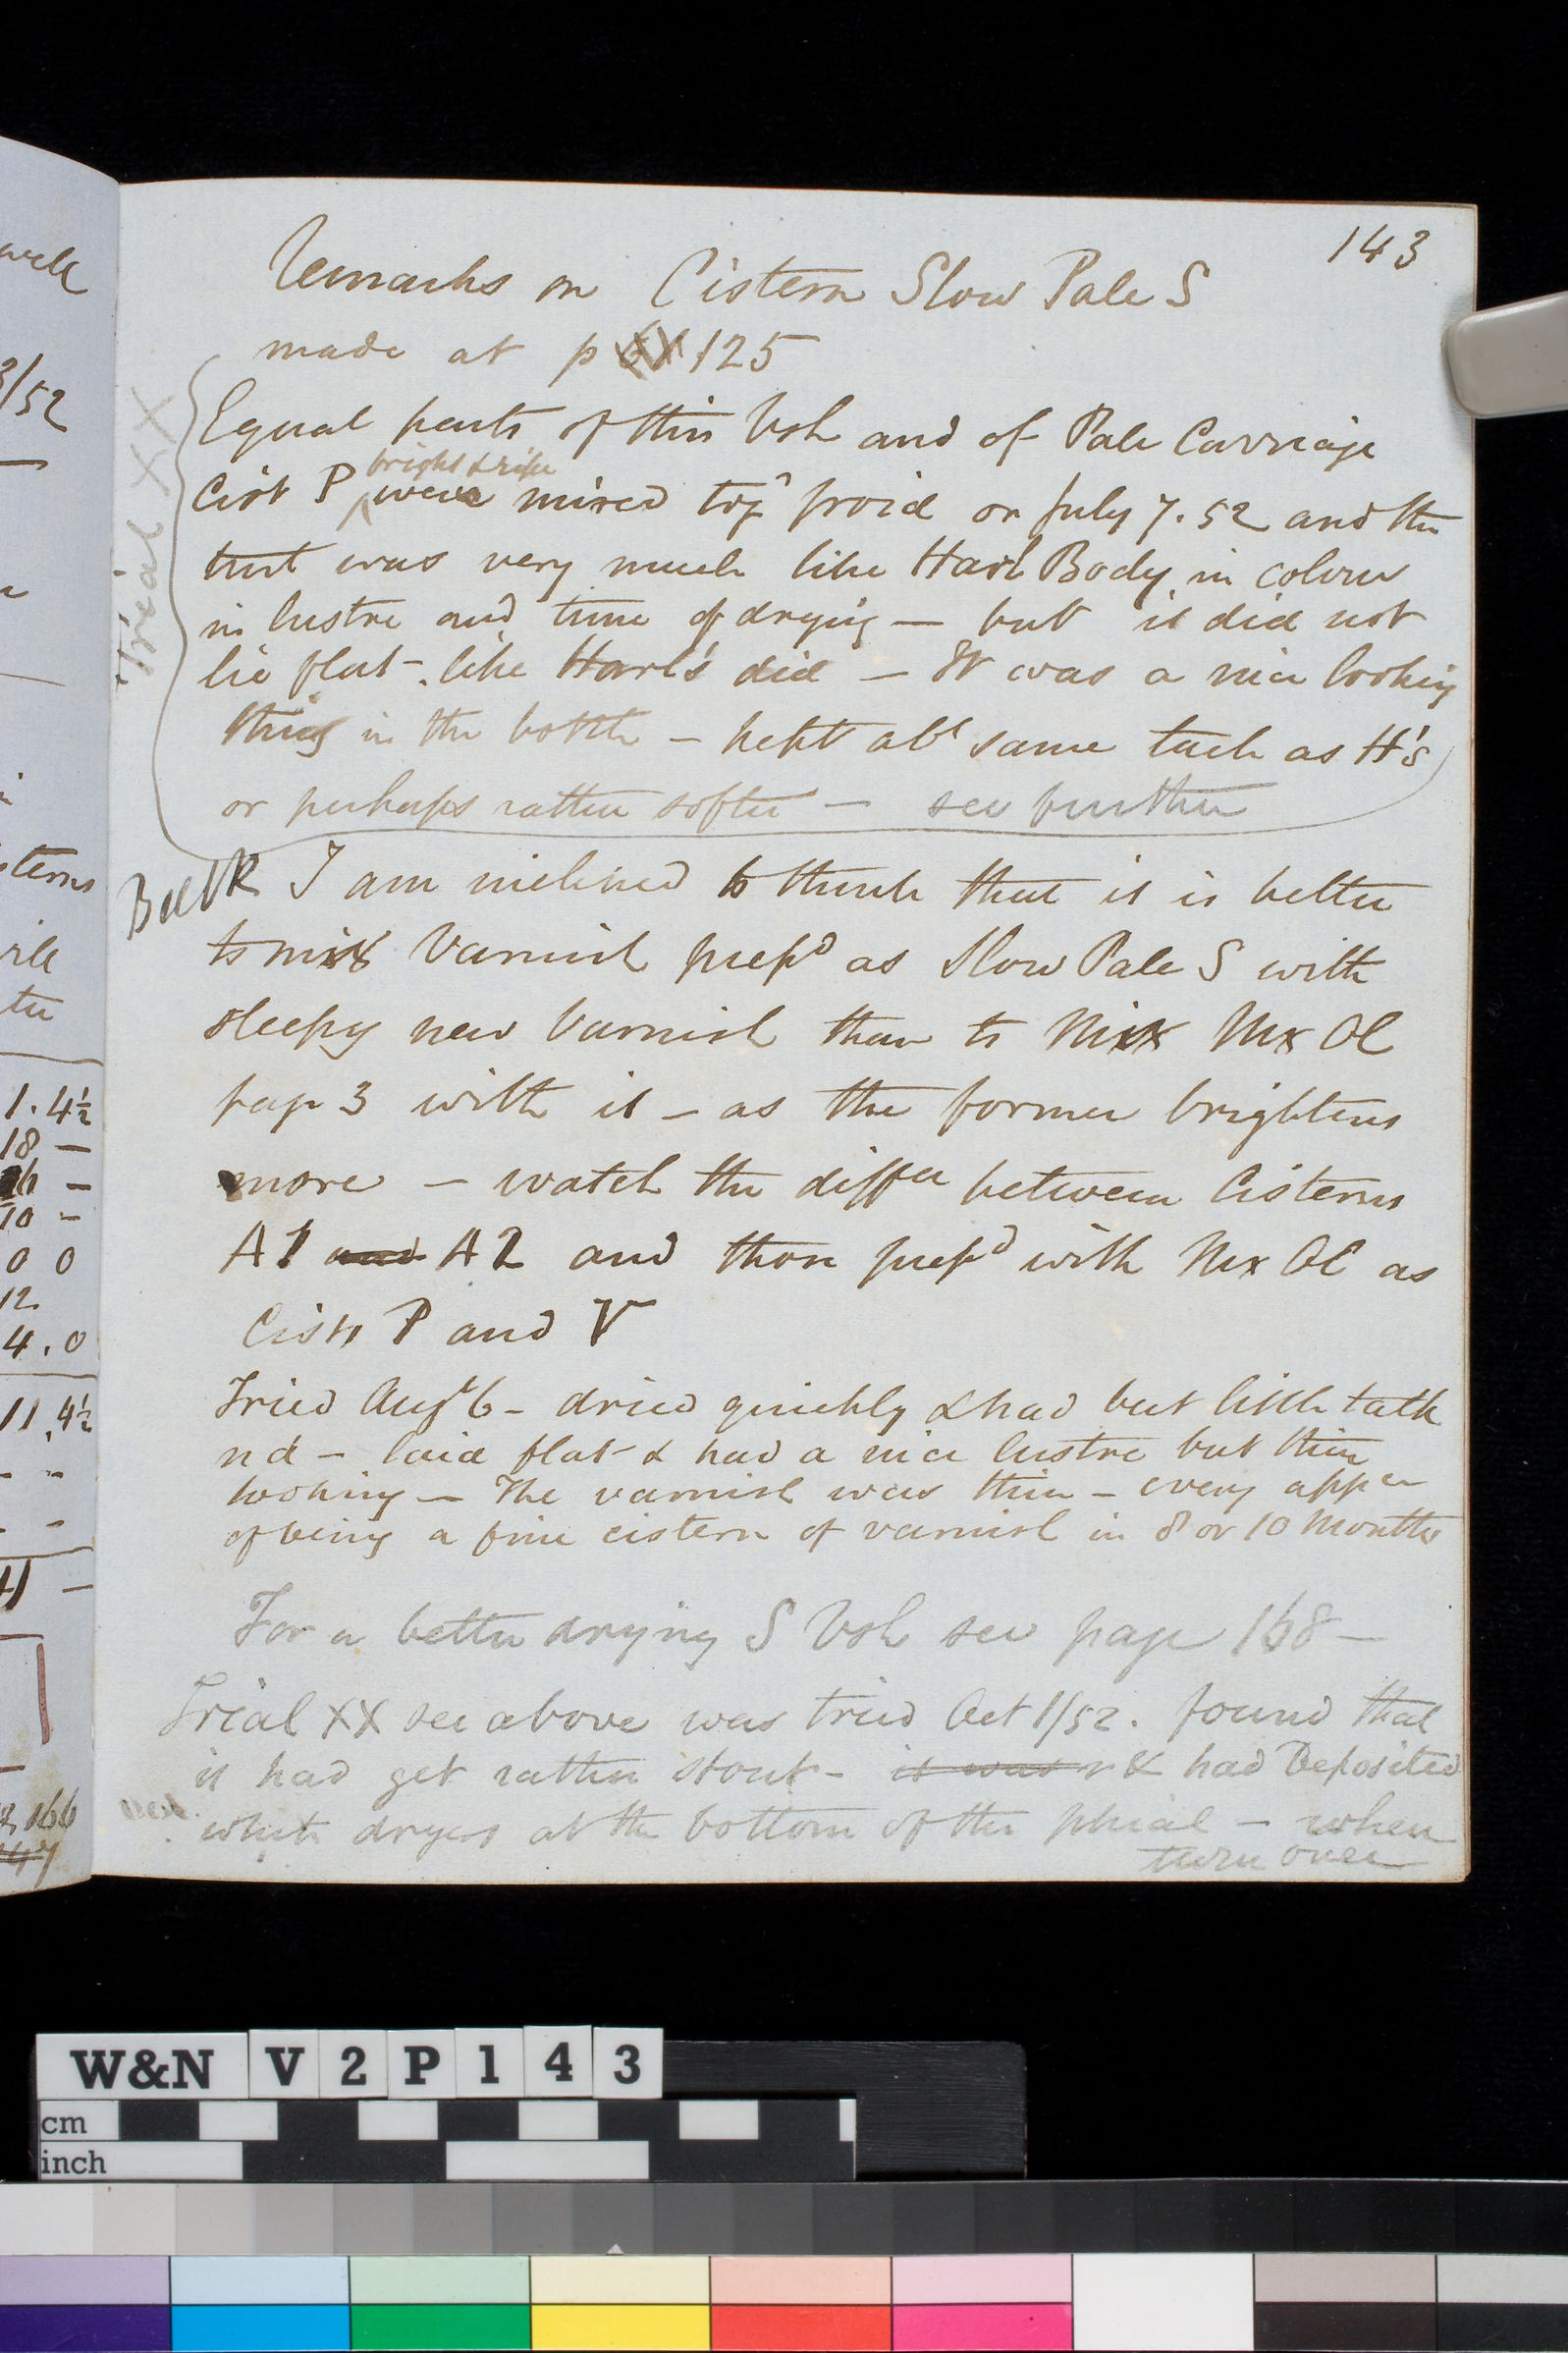 143
Remarks on Cistern Slow Pale S
made at p 61 125
Equal parts of this Vsh and of Pale Carriage
bright & ripe
Cist P were mixed togr froid on July 7. 52 and the
tint was very much like Harl Body in colour
in lustre and time of drying — but it did not
lie flat - like Harl's did — It was a nice looking
thing in the bottle — kept abt same tack as H's
or perhaps rather softer — see further
Trial XX
Bulk I am inclined to think that it is better
to mix Varnish prepd as Slow Pale S with
sleepy new Varnish than to Mix Mx OC
page 3 with it — as the former brightens
more — watch the diffce between Cisterns
A1 and A2 and those prepd with Mx OC as
Cists P and V
Tried Augt 6 - dried quickly & had but little tack
nd - laid flat & had a nice lustre but thin
looking — The varnish was thin — every appce
of being a fine cistern of varnish in 8 or 10 Months
For a better drying S Vsh see page 168 —
Trial XX see above was tried Oct 1/52. found that
it had get rather stout - it was & had Deposited
white dryers at the bottom of the phial — when
turn over
well
3/52
sterns
1. 4½
18 —
10 -
0 0
12.
4. 0
11. 4½
166
W&N V 2 P 1 4 3
cm
inch